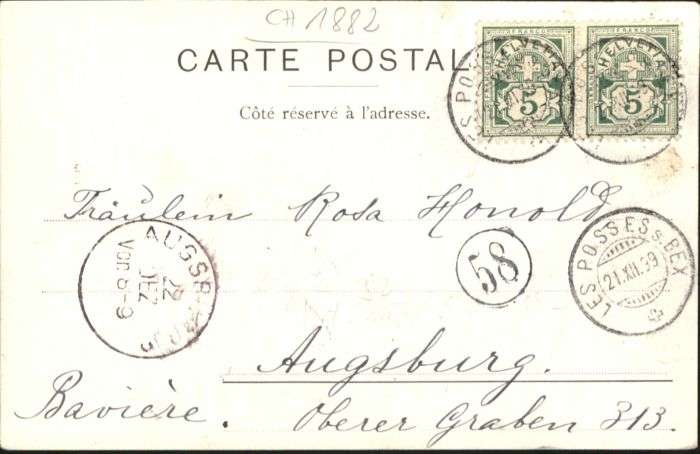 CH 1882
CARTE POSTAL
Côté réservé à l'adresse.
FRANCO HELVETIA 5
FRANCO HELVETIA 5
LES POSS
Fräulein Rosa Honold
AUGSB
22
DEZ
VOR. 8-9
58
LES POSSES s. BEX
21.XII.99
Augsburg.
Bavière. Oberer Graben 313.